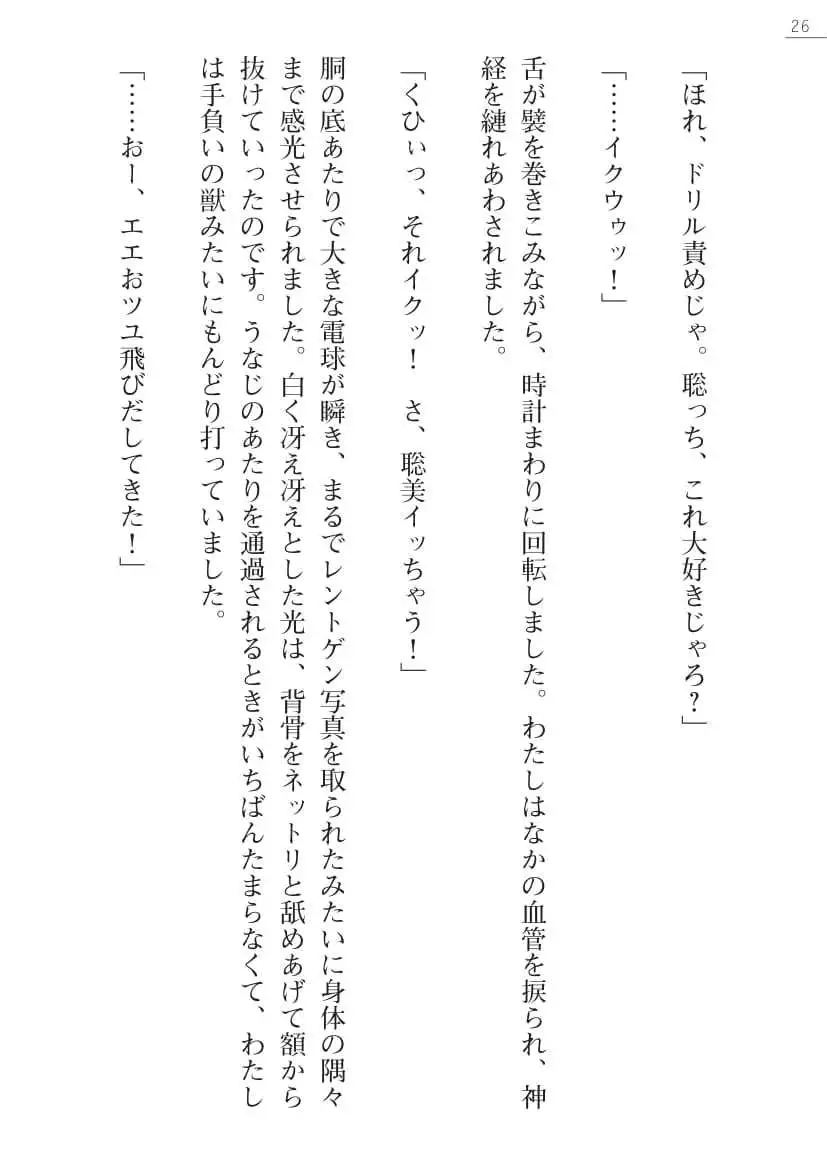 26
「ほれ、ドリル責めじゃ。聡っち、これ大好きじゃろ?」
「……イクウゥッ!」
舌が襞を巻きこみながら、時計まわりに回転しました。わたしはなかの血管を捩られ、神
経を縺れあわされました。
「くひぃっ、それイクッ! さ、聡美イッちゃう!」
胴の底あたりで大きな電球が瞬き、まるでレントゲン写真を取られたみたいに身体の隅々
まで感光させられました。白く冴え冴えとした光は、背骨をネットリと舐めあげて額から
抜けていったのです。うなじのあたりを通過されるときがいちばんたまらなくて、わたし
は手負いの獣みたいにもんどり打っていました。
「……おー、エエおツユ飛びだしてきた!」